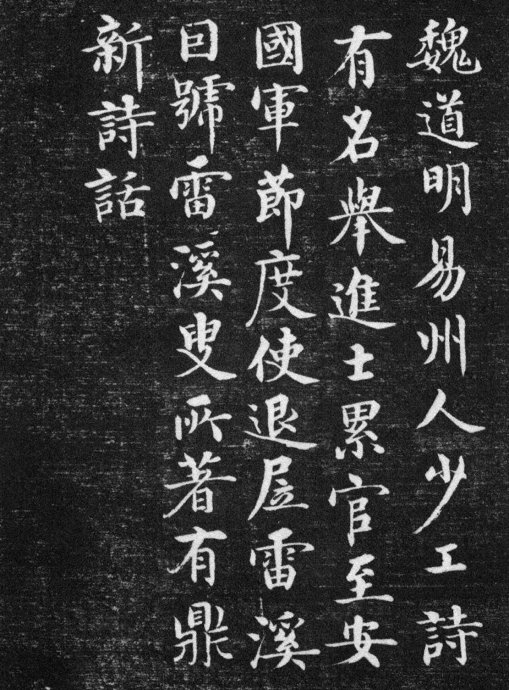 魏道明易州人少工詩
有名舉進士累官至安
國軍節度使退居雷溪
自號雷溪叟所著有鼎
新詩話